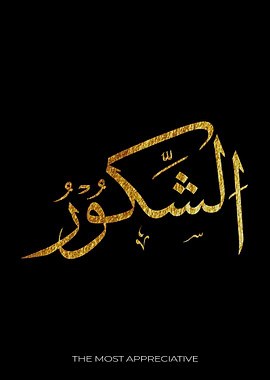 الشَّكُورُ
THE MOST APPRECIATIVE